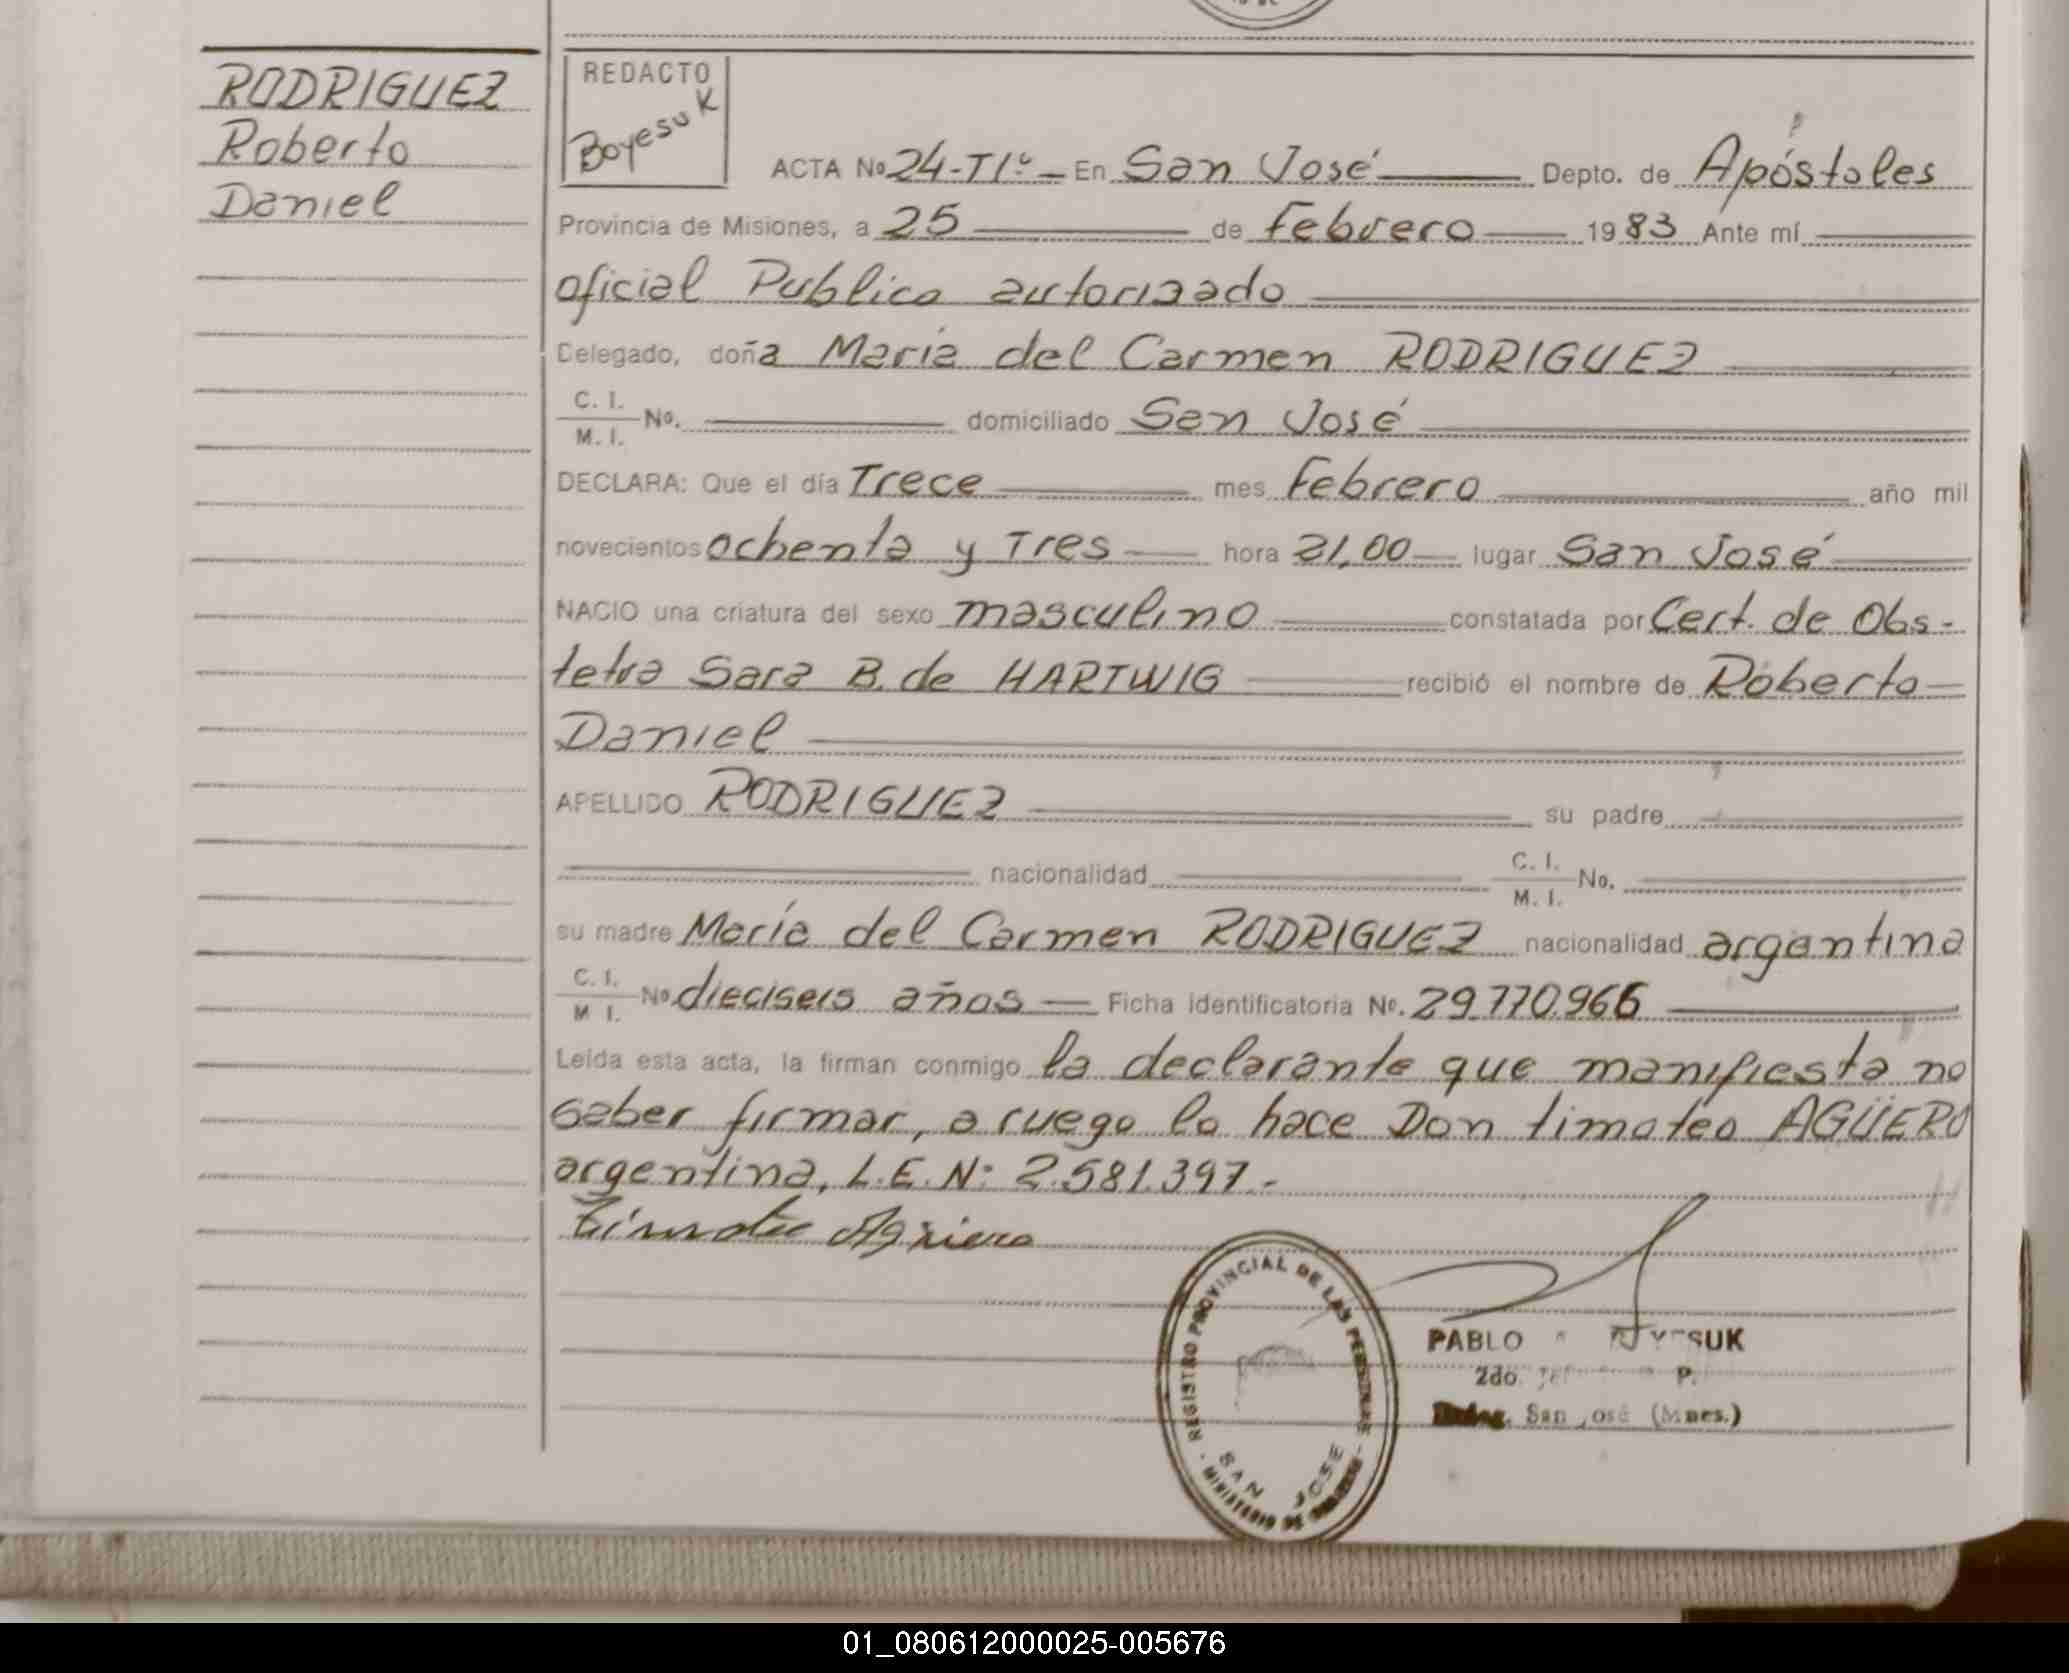 RODRIGUEZ
Roberto
Daniel
REDACTO
Boyesuk
ACTA No 24-TIº - En San José Depto. de Apóstoles
Provincia de Misiones, a 25 de Febrero 1983 Ante mí
oficial Publico autorizado
Delegado, doña Maria del Carmen RODRIGUEZ
C. I.
M. I. No. domiciliado San José
DECLARA: Que el día Trece mes Febrero año mil
novecientos ochenta y Tres hora 21,00 lugar San José
NACIO una criatura del sexo masculino constatada por Cert. de Obs-
tetra Sara B. de HARTWIG recibió el nombre de Roberto
Daniel
APELLIDO RODRIGUEZ su padre
nacionalidad C. I.
M. I. No.
su madre María del Carmen RODRIGUEZ nacionalidad argentina
C. I.
M I. No dieciseis años Ficha identificatoria No. 29.770.966
Leida esta acta, la firman conmigo la declarante que manifiesta no
saber firmar, a ruego lo hace Don timoteo AGÜERO
argentina, L.E. N: 2.581.397.-
Timoteo Agüero
REGISTRO PROVINCIAL DE LAS PERSONAS
SAN JOSE
MINISTERIO DE
PABLO
2do. P.
San José (Mnes.)
01_080612000025-005676